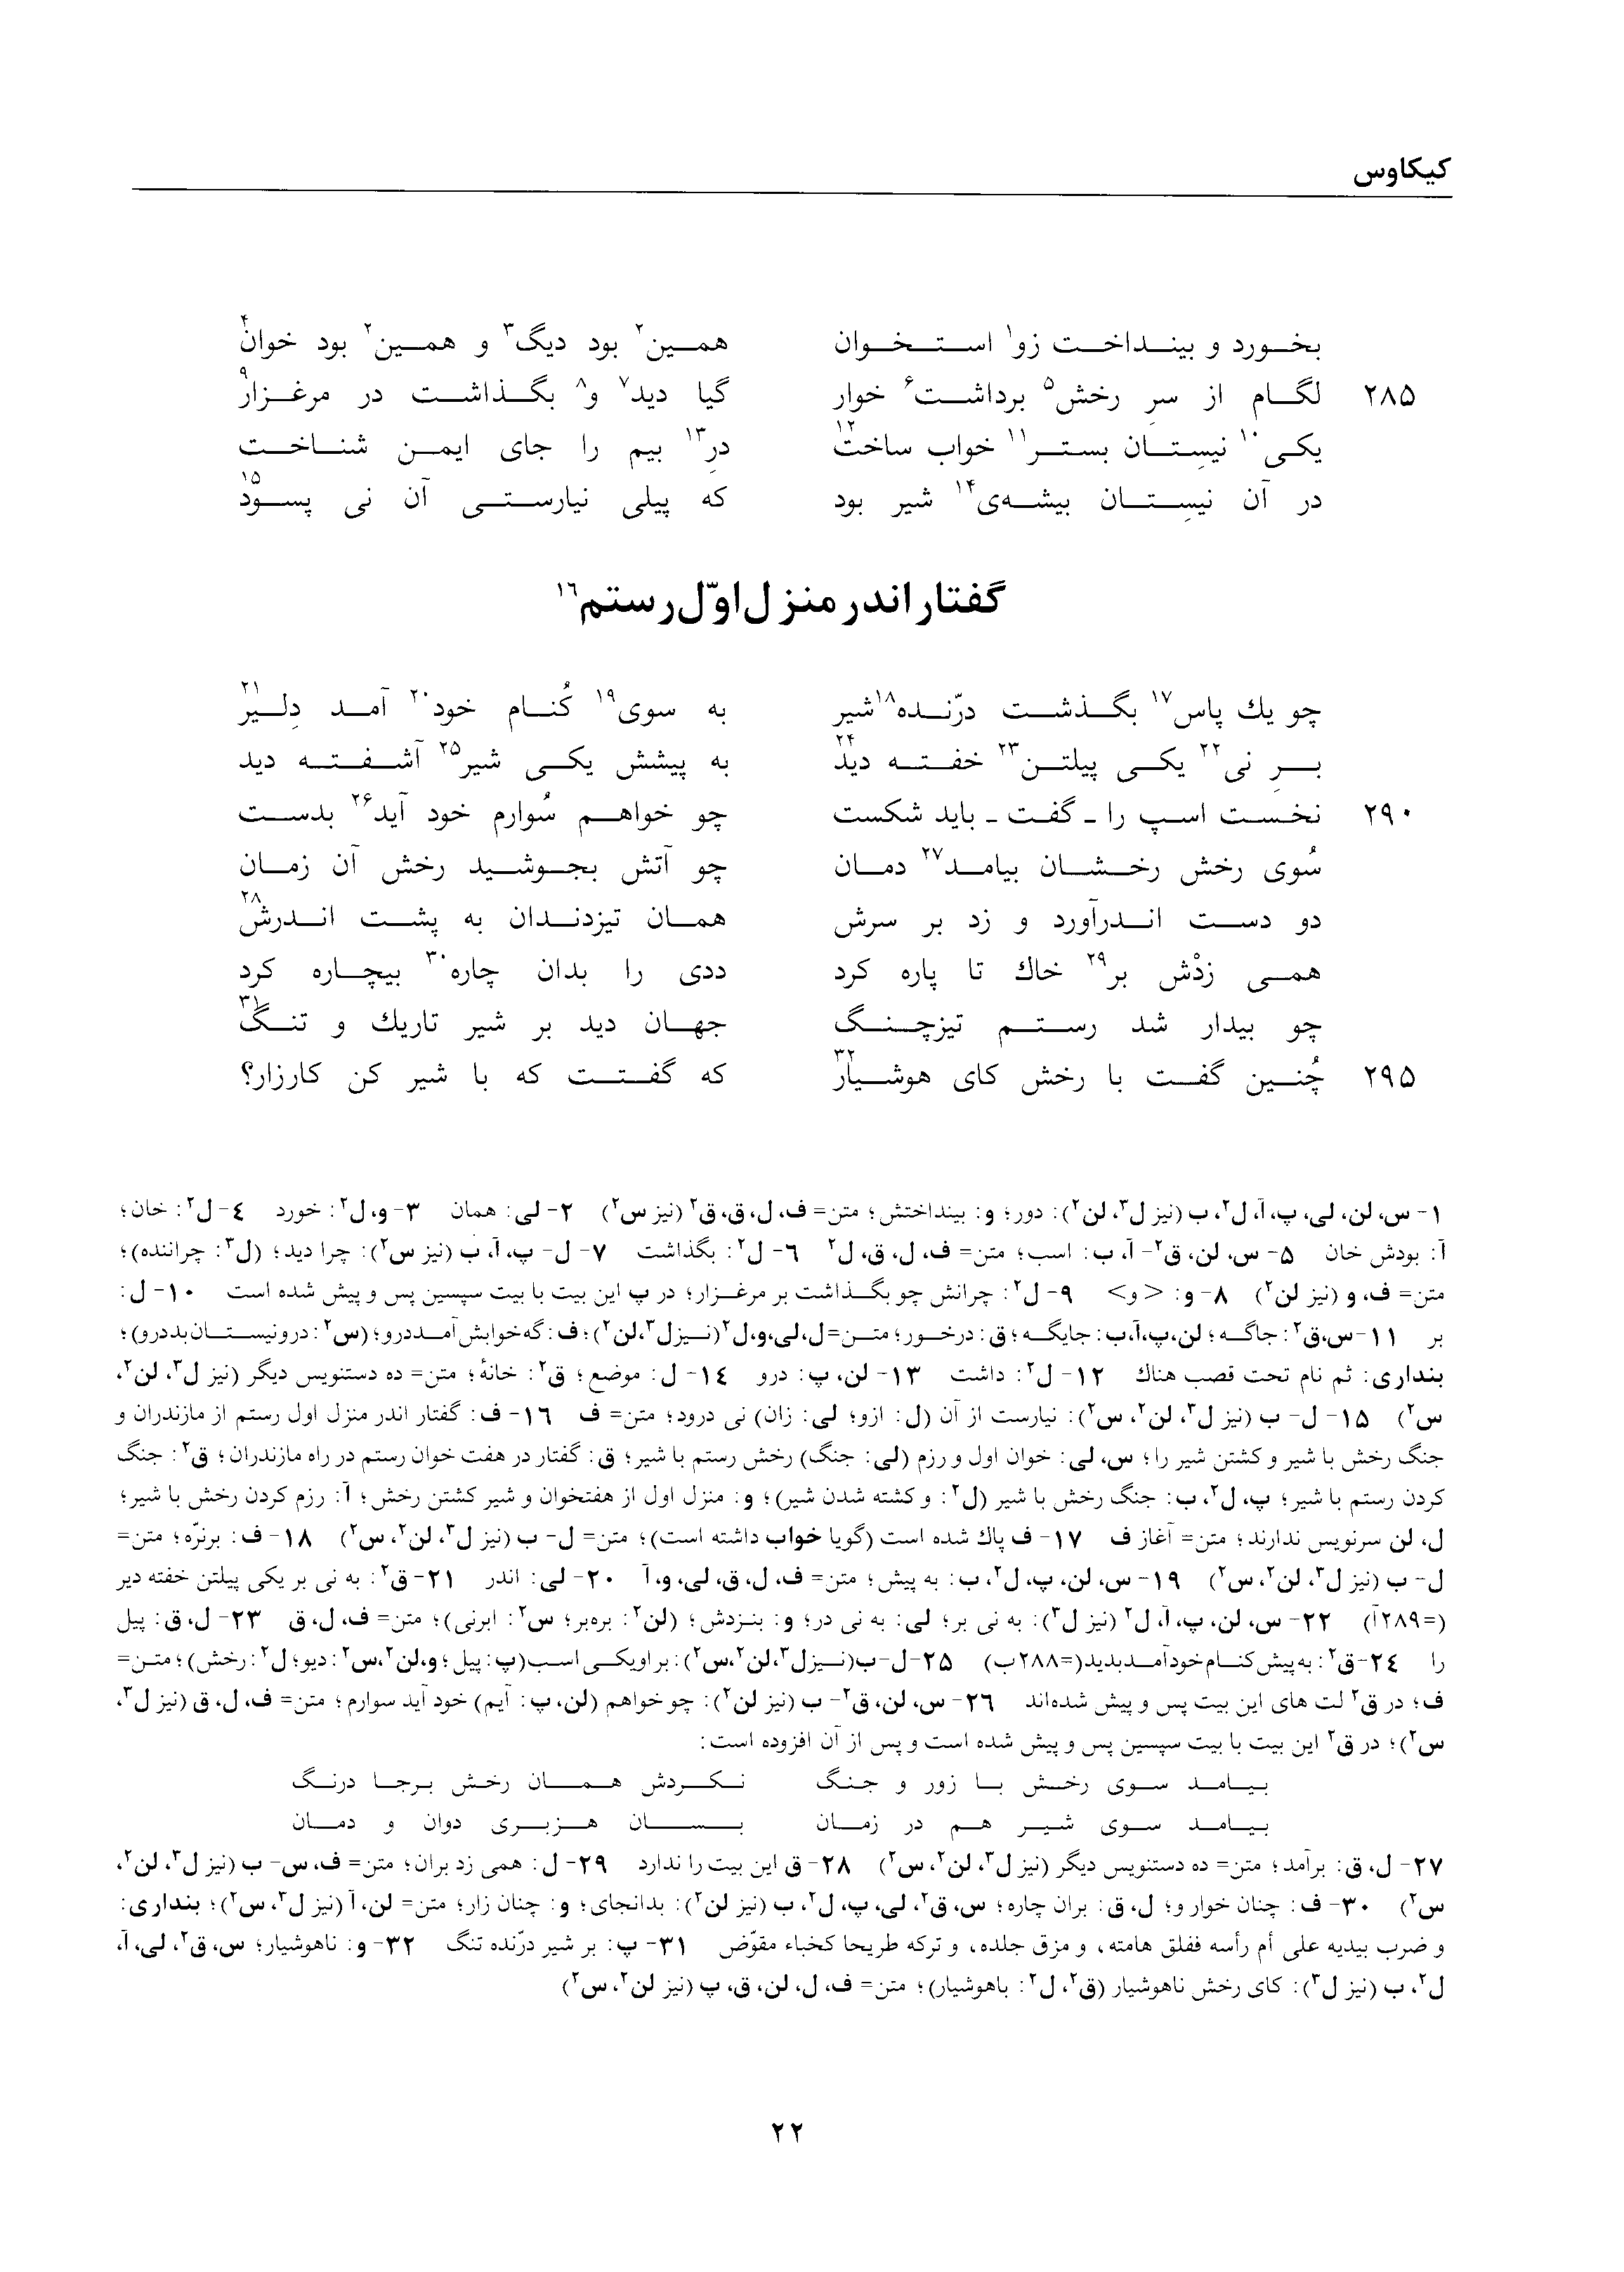 کیکاوس
بخورد و بینداخت زو۱ استخوان همین۲ بود دیگ۳ و همین۲ بود خوان۴
۲۸۵ لگام از سرِ رخش۵ برداشت۶ خوار گیا دید۷ و۸ بگذاشت در مرغزار۹
یکی۱۰ نیستان بستر۱۱ خواب ساخت۱۲ درِ۱۳ بیم را جای ایمن شناخت
در آن نیستان بیشه‌ی۱۴ شیر بود که پیلی نیارستی آن نی پسود۱۵
گفتار اندر منزل اوّل رستم۱۶
چو یك پاس۱۷ بگذشت درّنده۱۸ شیر به سوی۱۹ کُنام خود۲۰ آمد دلیر۲۱
برِ نی۲۲ یکی پیلتن۲۳ خفته دید۲۴ به پیشش یکی شیر۲۵ آشفته دید
۲۹۰ نخست اسپ را ـ گفت ـ باید شکست چو خواهم سُوارم خود آید۲۶ بدست
سُوی رخش رخشان بیامد۲۷ دمان چو آتش بجوشید رخش آن زمان
دو دست اندرآورد و زد بر سرش همان تیزدندان به پشت اندرش۲۸
همی زدْش بر۲۹ خاك تا پاره کرد ددی را بدان چاره۳۰ بیچاره کرد
چو بیدار شد رستم تیزچنگ جهان دید بر شیر تاریك و تنگ۳۱
۲۹۵ چُنین گفت با رخش کای هوشیار۳۲ که گفتت که با شیر کن کارزار؟
۱- س، لن، لی، پ، آ، ل۲، ب (نیز ل۳، لن۲): دور؛ و: بینداختش؛ متن= ف، ل، ق، ق۲ (نیز س۲) ۲- لی: همان ۳- و، ل۲: خورد ۴- ل۲: خان؛
آ: بودش خان ۵- س، لن، ق۲- آ، ب: اسب؛ متن= ف، ل، ق، ل۲ ۶- ل۲: بگذاشت ۷- ل- پ، آ، ب (نیز س۲): چرا دید؛ (ل۳: چراننده)؛
متن= ف، و (نیز لن۲) ۸- و: <و> ۹- ل۲: چرانش چو بگذاشت بر مرغزار؛ در پ این بیت با بیت سپسین پس و پیش شده است ۱۰- ل:
بر ۱۱- س، ق۲: جاگه؛ لن، پ، آ، ب: جایگه؛ ق: درخور؛ متن= ل، لی، و، ل۲ (نیز ل۳، لن۲)؛ ف: گه خوابش آمد درو؛ (س۲: درو نیستان بد درو)؛
بنداری: ثم نام تحت قصب هناك ۱۲- ل۲: داشت ۱۳- لن، پ: درو ۱۴- ل: موضع؛ ق۲: خانهٔ؛ متن= ده دستنویس دیگر (نیز ل۳، لن۲،
س۲) ۱۵- ل- ب (نیز ل۳، لن۲، س۲): نیارست از آن (ل: ازو؛ لی: زان) نی درود؛ متن= ف ۱۶- ف: گفتار اندر منزل اول رستم از مازندران و
جنگ رخش با شیر و کشتن شیر را؛ س، لی: خوان اول و رزم (لی: جنگ) رخش رستم با شیر؛ ق: گفتار در هفت خوان رستم در راه مازندران؛ ق۲: جنگ
کردن رستم با شیر؛ پ، ل۲، ب: جنگ رخش با شیر (ل۲: و کشته شدن شیر)؛ و: منزل اول از هفتخوان و شیر کشتن رخش؛ آ: رزم کردن رخش با شیر؛
ل، لن سرنویس ندارند؛ متن= آغاز ف ۱۷- ف پاك شده است (گویا خواب داشته است)؛ متن= ل- ب (نیز ل۳، لن۲، س۲) ۱۸- ف: برنزّه؛ متن=
ل- ب (نیز ل۳، لن۲، س۲) ۱۹- س، لن، پ، ل۲، ب: به پیش؛ متن= ف، ل، ق، لی، و، آ ۲۰- لی: اندر ۲۱- ق۲: به نی بر یکی پیلتن خفته دیر
(=۲۸۹آ) ۲۲- س، لن، پ، آ، ل۲ (نیز ل۳): به نی بر؛ لی: به نی در؛ و: بنزدش؛ (لن۲: بره‌بر؛ س۲: ابرنی)؛ متن= ف، ل، ق ۲۳- ل، ق: پیل
را ۲۴- ق۲: به پیش کنام خود آمد بدید (=۲۸۸ب) ۲۵- ل- ب (نیز ل۳، لن۲، س۲): بر او یکی اسب (پ: پیل؛ و، لن۲، س۲: دیو؛ ل۲: رخش)؛ متن=
ف؛ در ق۲ لت های این بیت پس و پیش شده‌اند ۲۶- س، لن، ق۲- ب (نیز لن۲): چو خواهم (لن، پ: آیم) خود آید سوارم؛ متن= ف، ل، ق (نیز ل۳،
س۲)؛ در ق۲ این بیت با بیت سپسین پس و پیش شده است و پس از آن افزوده است:
بیامد سوی رخش با زور و جنگ نکردش همان رخش برجا درنگ
بیامد سوی شیر هم در زمان بسان هزبری دوان و دمان
۲۷- ل، ق: برآمد؛ متن= ده دستنویس دیگر (نیز ل۳، لن۲، س۲) ۲۸- ق این بیت را ندارد ۲۹- ل: همی زد بران؛ متن= ف، س- ب (نیز ل۳، لن۲،
س۲) ۳۰- ف: چنان خوار و؛ ل، ق: بران چاره؛ س، ق۲، لی، پ، ل۲، ب (نیز لن۲): بدانجای؛ و: چنان زار؛ متن= لن، آ (نیز ل۳، س۲)؛ بنداری:
و ضرب بیدیه علی أم رأسه ففلق هامته، و مزق جلده، و ترکه طریحا کخباء مقوّض ۳۱- پ: بر شیر درّنده تنگ ۳۲- و: ناهوشیار؛ س، ق۲، لی، آ،
ل۲، ب (نیز ل۳): کای رخش ناهوشیار (ق۲، ل۲: باهوشیار)؛ متن= ف، ل، لن، ق، پ (نیز لن۲، س۲)
۲۲